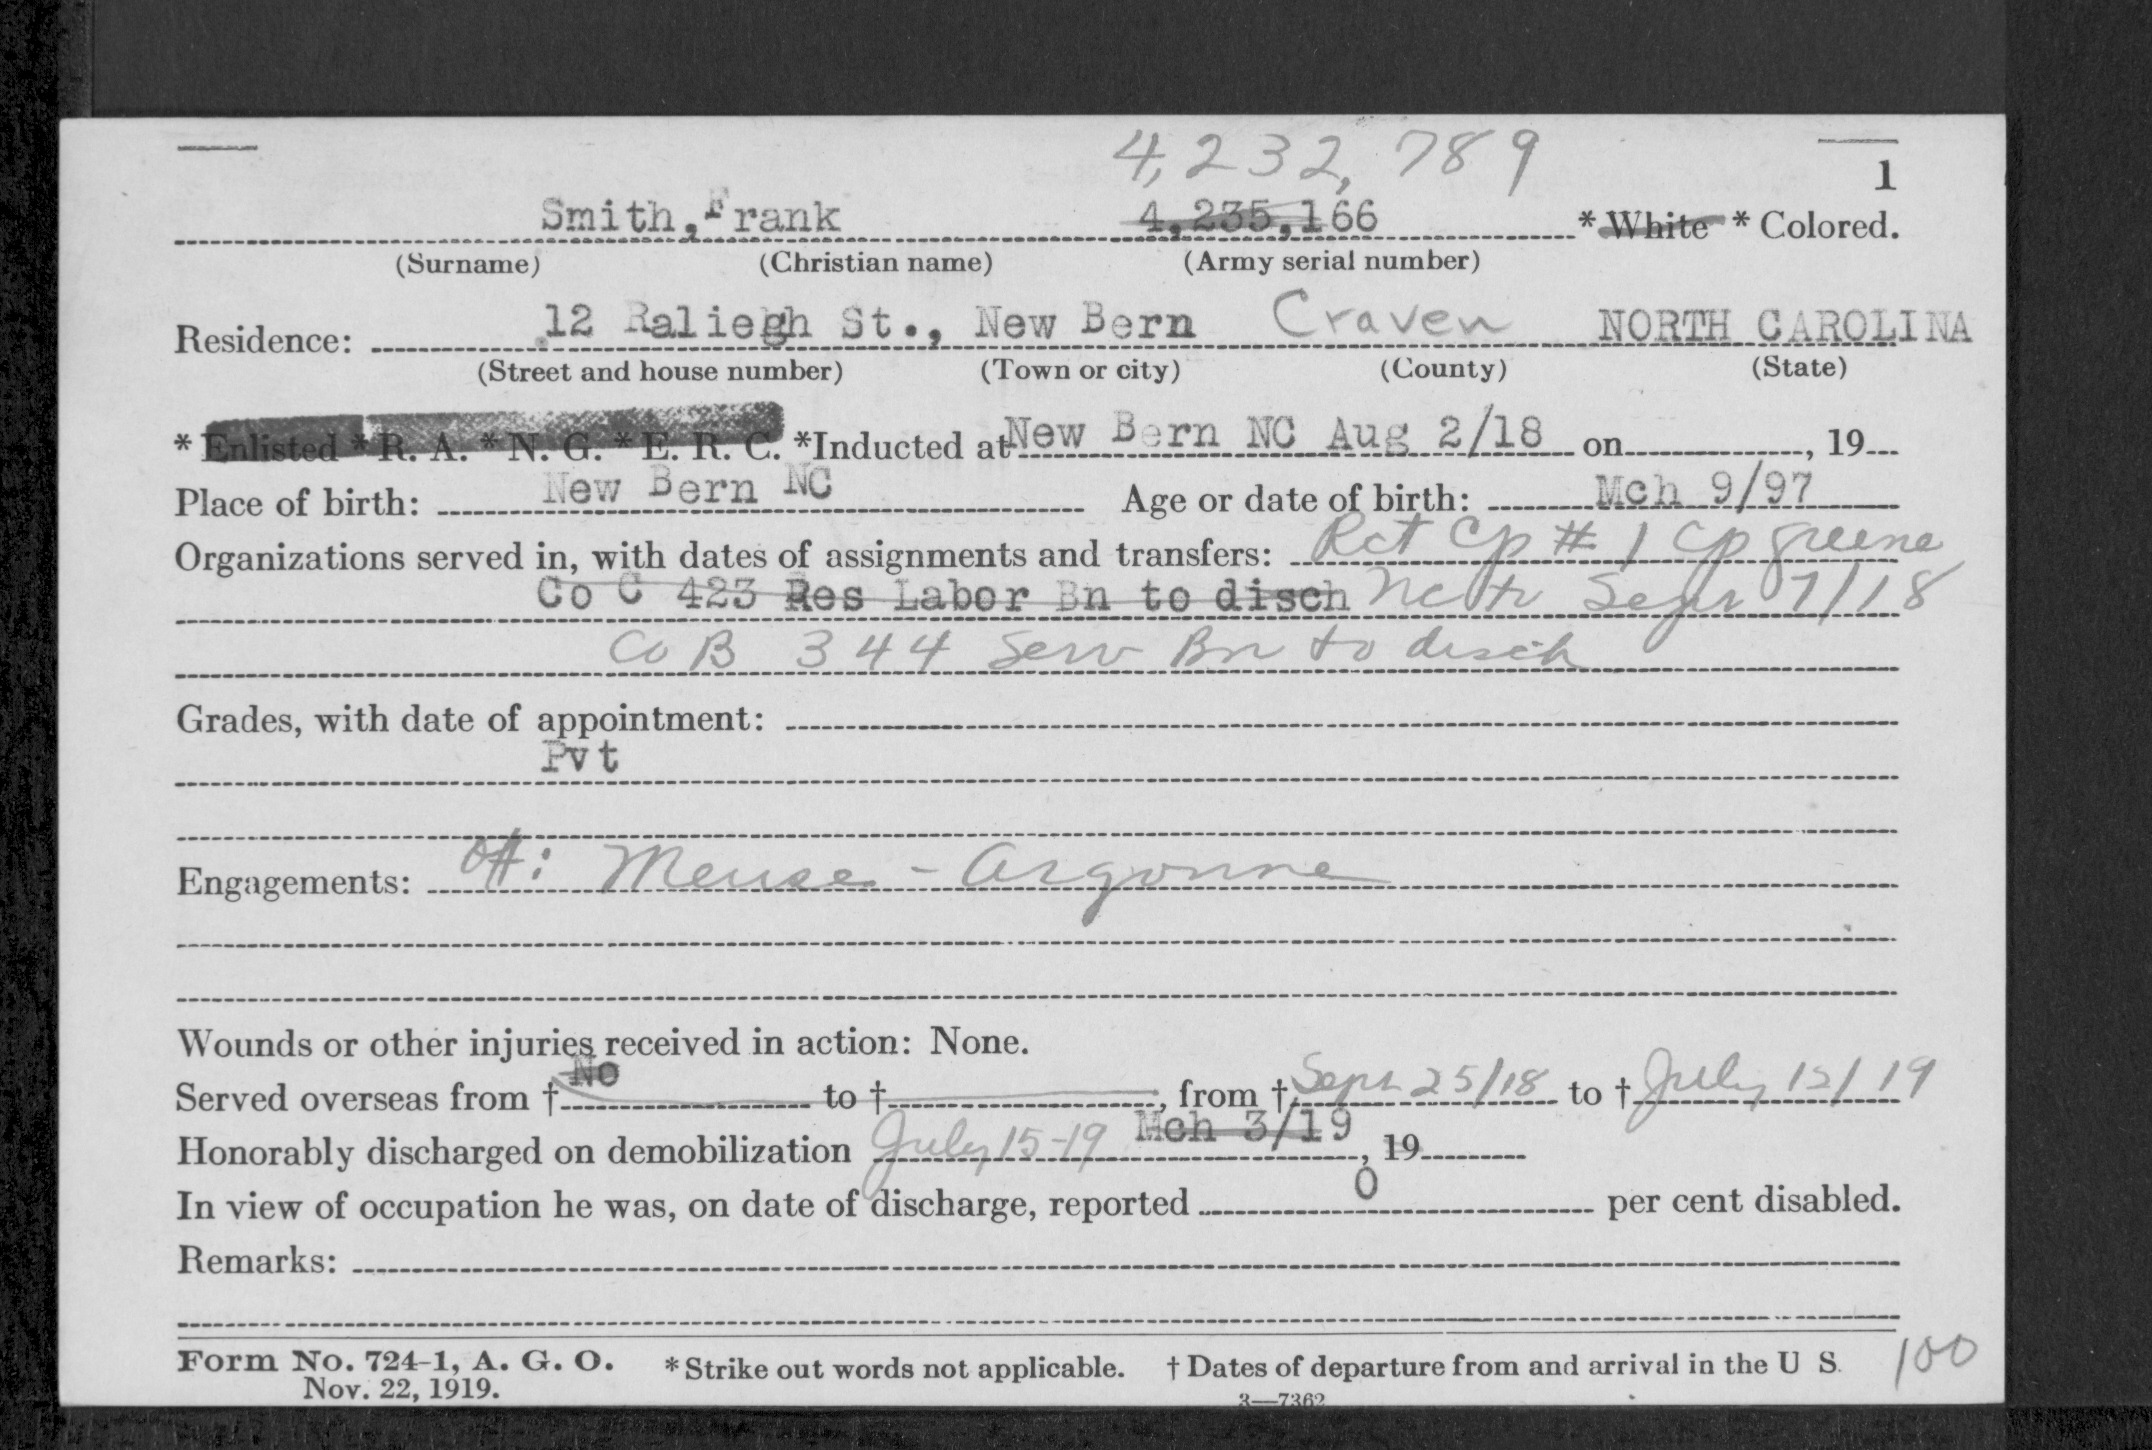 4,232,789
1
Smith, Frank 4,235,166 * White * Colored.
(Surname) (Christian name) (Army serial number)
Residence: 12 Raliegh St., New Bern Craven NORTH CAROLINA
(Street and house number) (Town or city) (County) (State)
* Enlisted * R. A. * N. G. * E. R. C. *Inducted at New Bern NC Aug 2/18 on , 19
Place of birth: New Bern NC Age or date of birth: Mch 9/97
Organizations served in, with dates of assignments and transfers: Rct Cp # 1 Cp Greene
Co C 423 Res Labor Bn to disch NC to Sept 7/18
Co B 344 Serv Bn to disch
Grades, with date of appointment:
Pvt
Engagements: Meuse-Argonne
Wounds or other injuries received in action: None.
Served overseas from † No to † , from † Sept 25/18 to † July 12/19
Honorably discharged on demobilization July 15-19 Mch 3/19, 19
In view of occupation he was, on date of discharge, reported 0 per cent disabled.
Remarks:
Form No. 724-1, A. G. O. * Strike out words not applicable. † Dates of departure from and arrival in the U S. 100
Nov. 22, 1919. 3—7362